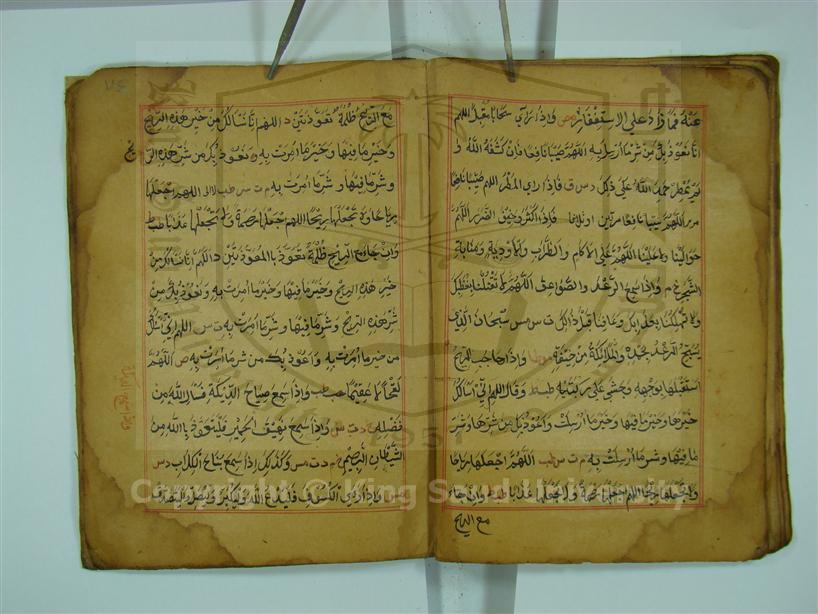 عنه فما زاد علي الاستغفار مص واذا رأي سحابا مقبلا اللهم
انا نعوذ بك من شر ما ارسل به اللهم صيبا نافعا فان كشفه الله و
لم يمطر حمد الله علي ذلك د س ق فاذا رأي المطر اللهم صيبا نافعا
مرر اللهم سيبا نافعا مرتين او ثلاثا فاذا اكثر وخيف الضرر اللهم
حوالينا ولا علينا اللهم علي الاكام والظراب والاودية ومنابت
الشجر خ م واذا سمع الرعد والصواعق اللهم لا تقتلنا بغضبك
ولا تهلكنا بعذابك وعافنا قبل ذلك ت س مس سبحان الذي
يسبح الرعد بحمده والملائكة من خيفته موطا واذا هاجت الريح
استقبلها بوجهه وجثي علي ركبتيه ط وقال اللهم اني اسالك
خيرها وخير ما فيها وخير ما ارسلت واعوذ بك من شرها وشر
ما فيها وشر ما ارسلت به م ت س طب اللهم اجعلها رياحا
ولا تجعلها ريحا اللهم اجعلها رحمة ولا تجعلها عذابا ط وان جاء
مع الريح
مع الريح ظلمة تعوذ د اللهم انا نسالك من خير هذه الريح
وخير ما فيها وخير ما امرت به ونعوذ بك من شر هذه الريح
وشر ما فيها وشر ما امرت به م ت س طب اللهم اجعلها
رياحا ولا تجعلها ريحا اللهم اجعلها رحمة ولا تجعلها عذابا ط
وان جاء مع الريح ظلمة تعوذ بالمعوذتين د اللهم انا نسالك من
خير هذه الريح وخير ما فيها وخير ما امرت به ونعوذ بك من
شر هذه الريح وشر ما فيها وشر ما امرت به ت س اللهم اني اسالك
من خير ما امرت به واعوذ بك من شر ما امرت به ص اللهم
لقحا لا عقيما حب طب واذا سمع صياح الديكة فسال الله من
فضله خ م د ت س واذا سمع نهيق الحمير فليتعوذ بالله من
الشيطان الرجيم خ م د ت مس وكذلك اذا سمع نباح الكلاب د س
مس واذا رأي الكسوف فليدع الله وليكبر وليصل وليتصدق